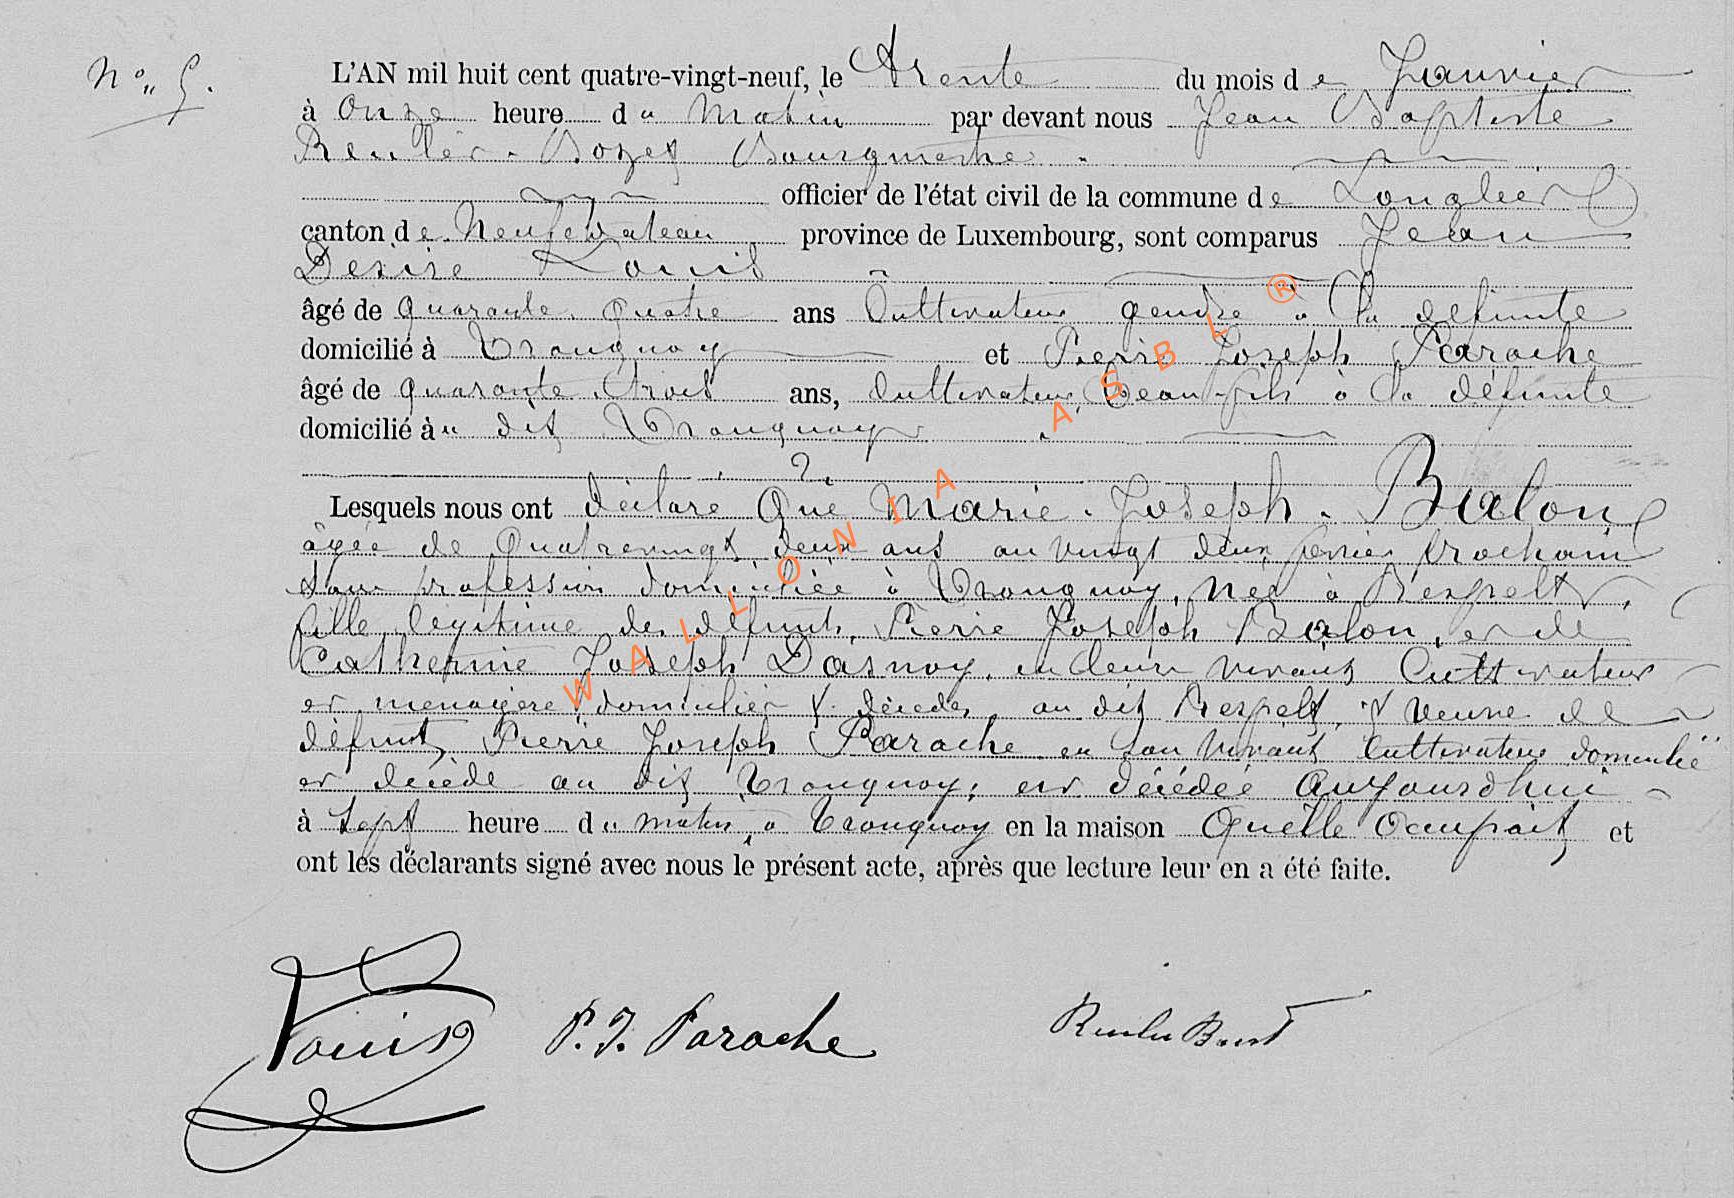 N° 5.
L'AN mil huit cent quatre-vingt-neuf, le Trente du mois de Janvier
à Onze heure du Matin par devant nous Jean Baptiste
Reuler-Bozet Bourgmestre.
officier de l'état civil de la commune de Longlier
canton de Neufchateau province de Luxembourg, sont comparus Jean
Desiré Louis
âgé de quarante quatre ans Cultivateur gendre à la défunte
domicilié à Tronquoy et Pierre Joseph Parache
âgé de quarante trois ans, Cultivateur, beau-fils à la défunte
domicilié à" dit Tronquoy
Lesquels nous ont déclaré Que Marie-Joseph-Balon
âgée de Quatrevingt deux ans au vingt deux février prochain
sans profession domiciliée à Tronquoy, née à Respelt,
fille légitime des défunts Pierre Joseph Balon, et de
Catherine Joseph Dasnoy, en leur vivant Cultivateur
et menagère, domiciliés & décédés au dit Respelt, & veuve de
défunt, Pierre Joseph Parache en son vivant Cultivateur domicilié
et décédé au dit Tronquoy; est décédée aujourd'hui
à Sept heure du matin, à Tronquoy en la maison Quelle Occupait, et
ont les déclarants signé avec nous le présent acte, après que lecture leur en a été faite.
Louis P. J. Parache Reuler Bozet
WALLONIA ASBL ®